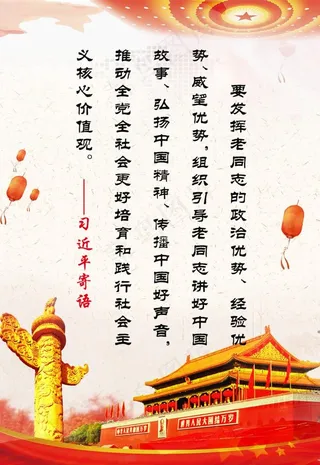 要发挥老同志的政治优势、经验优
势、威望优势，组织引导老同志讲好中国
故事、弘扬中国精神、传播中国好声音，
推动全党全社会更好培育和践行社会主
义核心价值观。
——习近平寄语
世界人民大团结万岁